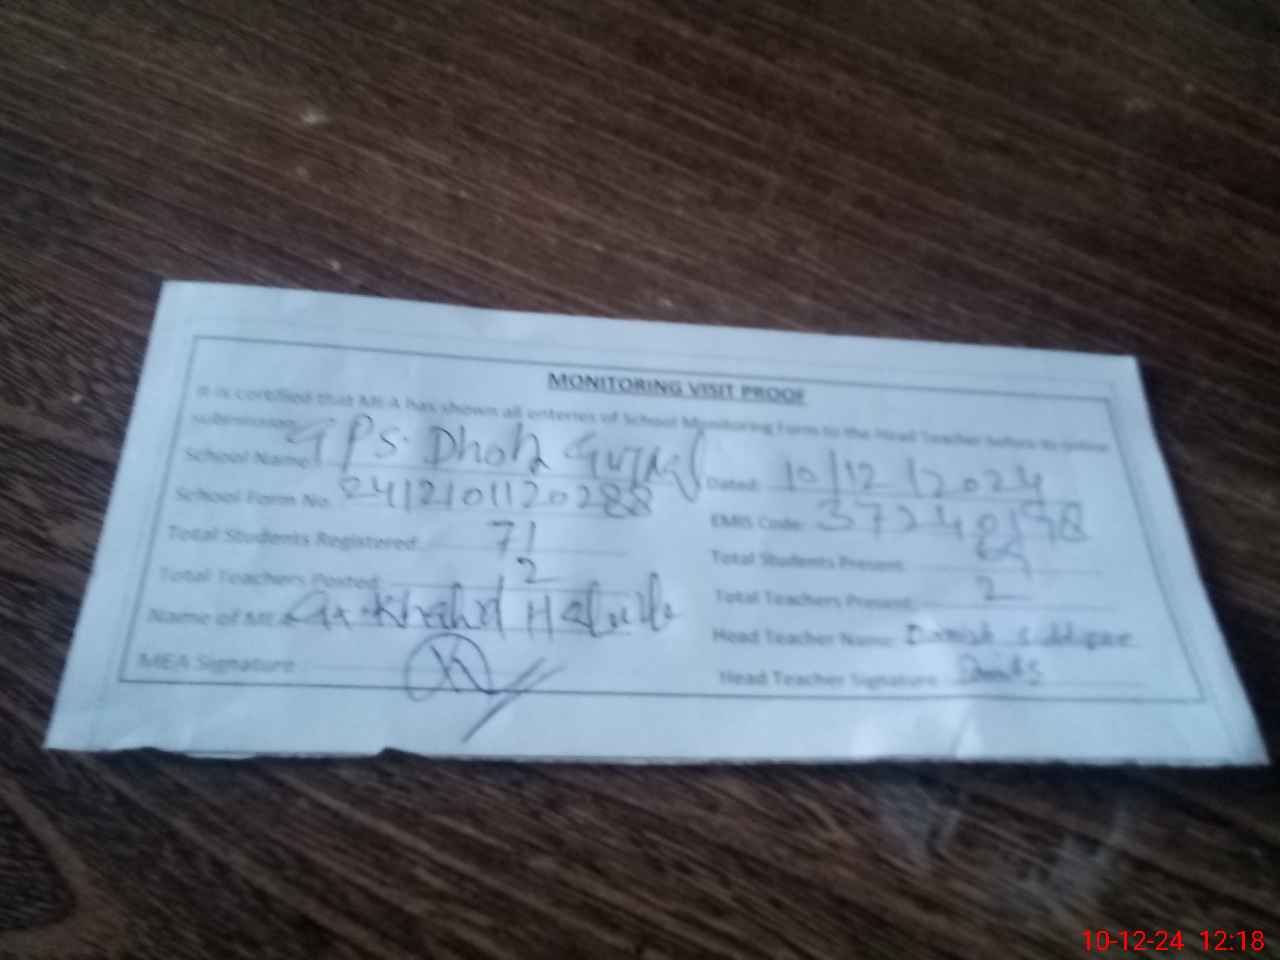 MONITORING VISIT PROOF
It is certified that MEA has shown all enteries of School Monitoring Form to the Head Teacher before its online
submission
School Name: GPS Dhok Gujral Dated: 10/12/2024
School Form No. 241210112028 EMIS Code: 372
Total Students Registered 71 Total Students Present
Total Teachers Posted: 2 Total Teachers Present: 2
Name of MEA Head Teacher Name: Danish
MEA Signature Head Teacher Signature
10-12-24 12:18